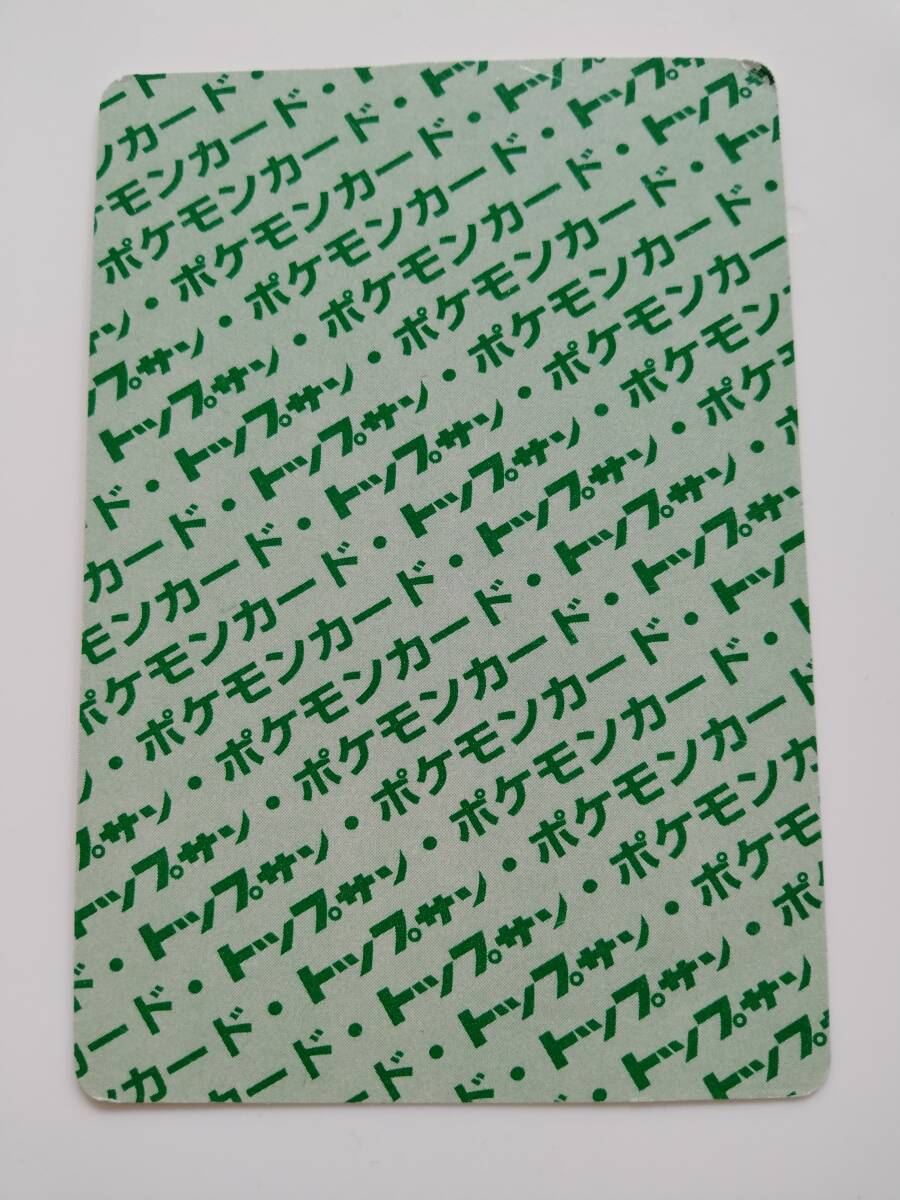 ド
ンカード・
ケモンカード・ト
ポケモンカード・トッ
サン・ポケモンカード・トップ
プサン・ポケモンカード・トップサ
トップサン・ポケモンカード・トップサ
ド・トップサン・ポケモンカード・トッ
カード・トップサン・ポケモンカード・
モンカード・トップサン・ポケモンカー
ポケモンカード・トップサン・ポケモン
ン・ポケモンカード・トップサン・ポケモ
プサン・ポケモンカード・トップサン・ポ
トップサン・ポケモンカード・トップサン
ド・トップサン・ポケモンカード・トップ
カード・トップサン・ポケモンカード・ト
ンカード・トップサン・ポケモンカード
カード・トップサン・ポケモンカ
ド・トップサン・ポケモ
・トップサン・ポ
・トップサン
トップサ